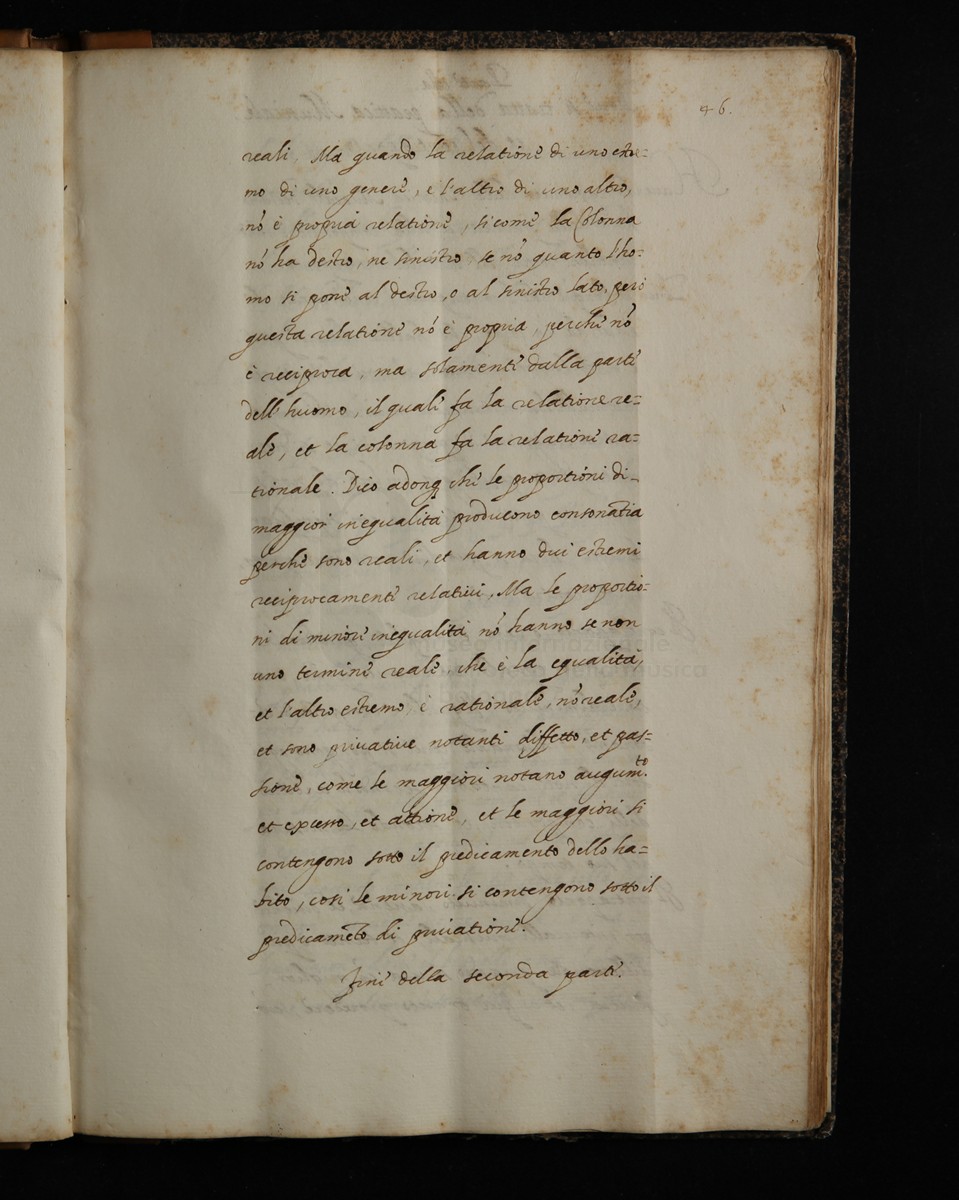 46.
reali. Ma quando la relatione di uno estre=
mo di uno genere, e l'altro di uno altro,
nõ è propria relatione, si come la Colonna
nõ ha destro, ne sinistro, se nõ quanto l'ho=
mo si pone al destro, o al sinistro lato, però
questa relatione nõ è propria, perche nõ
è reciproca, ma solamente dalla parte
dell'huomo, il quale fa la relatione re=
ale, et la colonna fa la relatione ra=
tionale. Dico adonq che le proportioni di
maggior inequalità producono consonãtia
perche sono reali, et hanno dui estremi
reciprocamente relativi, Ma le proportio=
ni di minore inequalità nõ hanno se non
uno termine reale, che è la equalità,
et l'altro estremo, è rationale, nõ reale,
et sono privative notanti diffetto, et pas=
sione, come le maggiori notano augum.to
et excesso, et attione, et le maggiori si
contengono sotto il predicamento dello ha=
bito, cosi le minori si contengono sotto il
predicamẽto di privatione.
Fine della seconda parte.